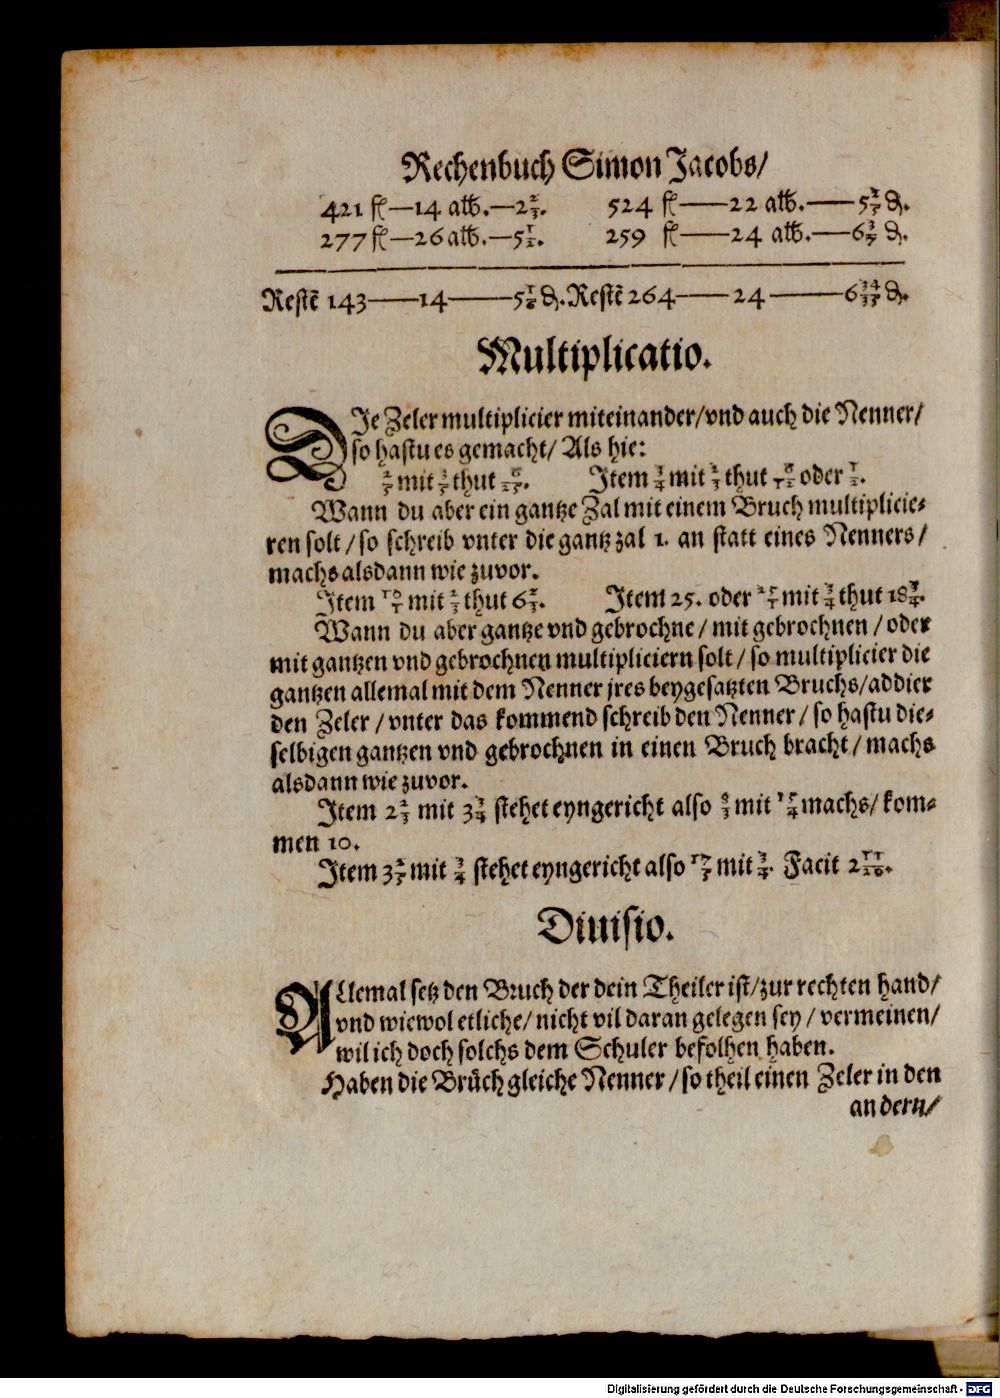 Rechenbuch Simon Jacobs/
421 fl—14 alb.—2 2/3. 524 fl—22 alb.—5 2/5 ₰.
277 fl—26 alb.—5 1/2. 259 fl—24 alb.—6 3/7 ₰.
Restē 143—14—5 1/6 ₰. Restē 264—24—6 34/35 ₰.
Multiplicatio.
DIe Zeler multiplicier miteinander/vnd auch die Nenner/
so hastu es gemacht/ Als hie:
2/5 mit 3/5 thut 6/25. Item 3/4 mit 2/3 thut 6/12 oder 1/2.
Wann du aber ein gantze Zal mit einem Bruch multiplicie-
ren solt/so schreib vnter die gantz zal 1. an statt eines Nenners/
machs alsdann wie zuvor.
Item 10/1 mit 2/3 thut 6 2/3. Item 25. oder 25/1 mit 3/4 thut 18 3/4.
Wann du aber gantze vnd gebrochne/ mit gebrochnen/oder
mit gantzen vnd gebrochnen multipliciern solt/so multiplicier die
gantzen allemal mit dem Nenner jres beygesatzten Bruchs/addier
den Zeler/vnter das kommend schreib den Nenner/so hastu die-
selbigen gantzen vnd gebrochnen in einen Bruch bracht/machs
alsdann wie zuvor.
Item 2 2/3 mit 3 3/4 stehet eyngericht also 8/3 mit 15/4 machs/kom-
men 10.
Item 3 2/5 mit 3/4 stehet eyngericht also 17/5 mit 3/4. Facit 2 11/20.
Diuisio.
ALlemal setz den Bruch der dein Theiler ist/zur rechten hand/
vnd wiewol etliche/nicht vil daran gelegen sey/vermeinen/
wil ich doch solchs dem Schuler befolhen haben.
Haben die Brůch gleiche Nenner/so theil einen Zeler in den
andern/
Digitalisierung gefördert durch die Deutsche Forschungsgemeinschaft - DFG